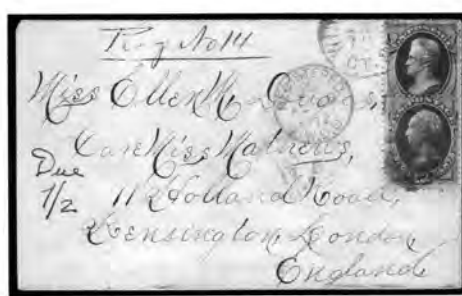 Reg No 14
Miss Ellen M.
Care Miss Mathews,
Due
1/2
11 Holland Road,
Kensington, London
England